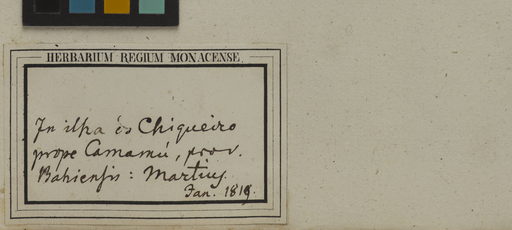 HERBARIUM REGIUM MONACENSE.
In ilha do Chiqueiro
prope Camamú, prov.
Bahiensis: Martius.
Jan. 1819.